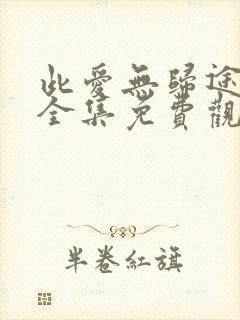 此愛無歸途
全集免費觀
半卷紅旗